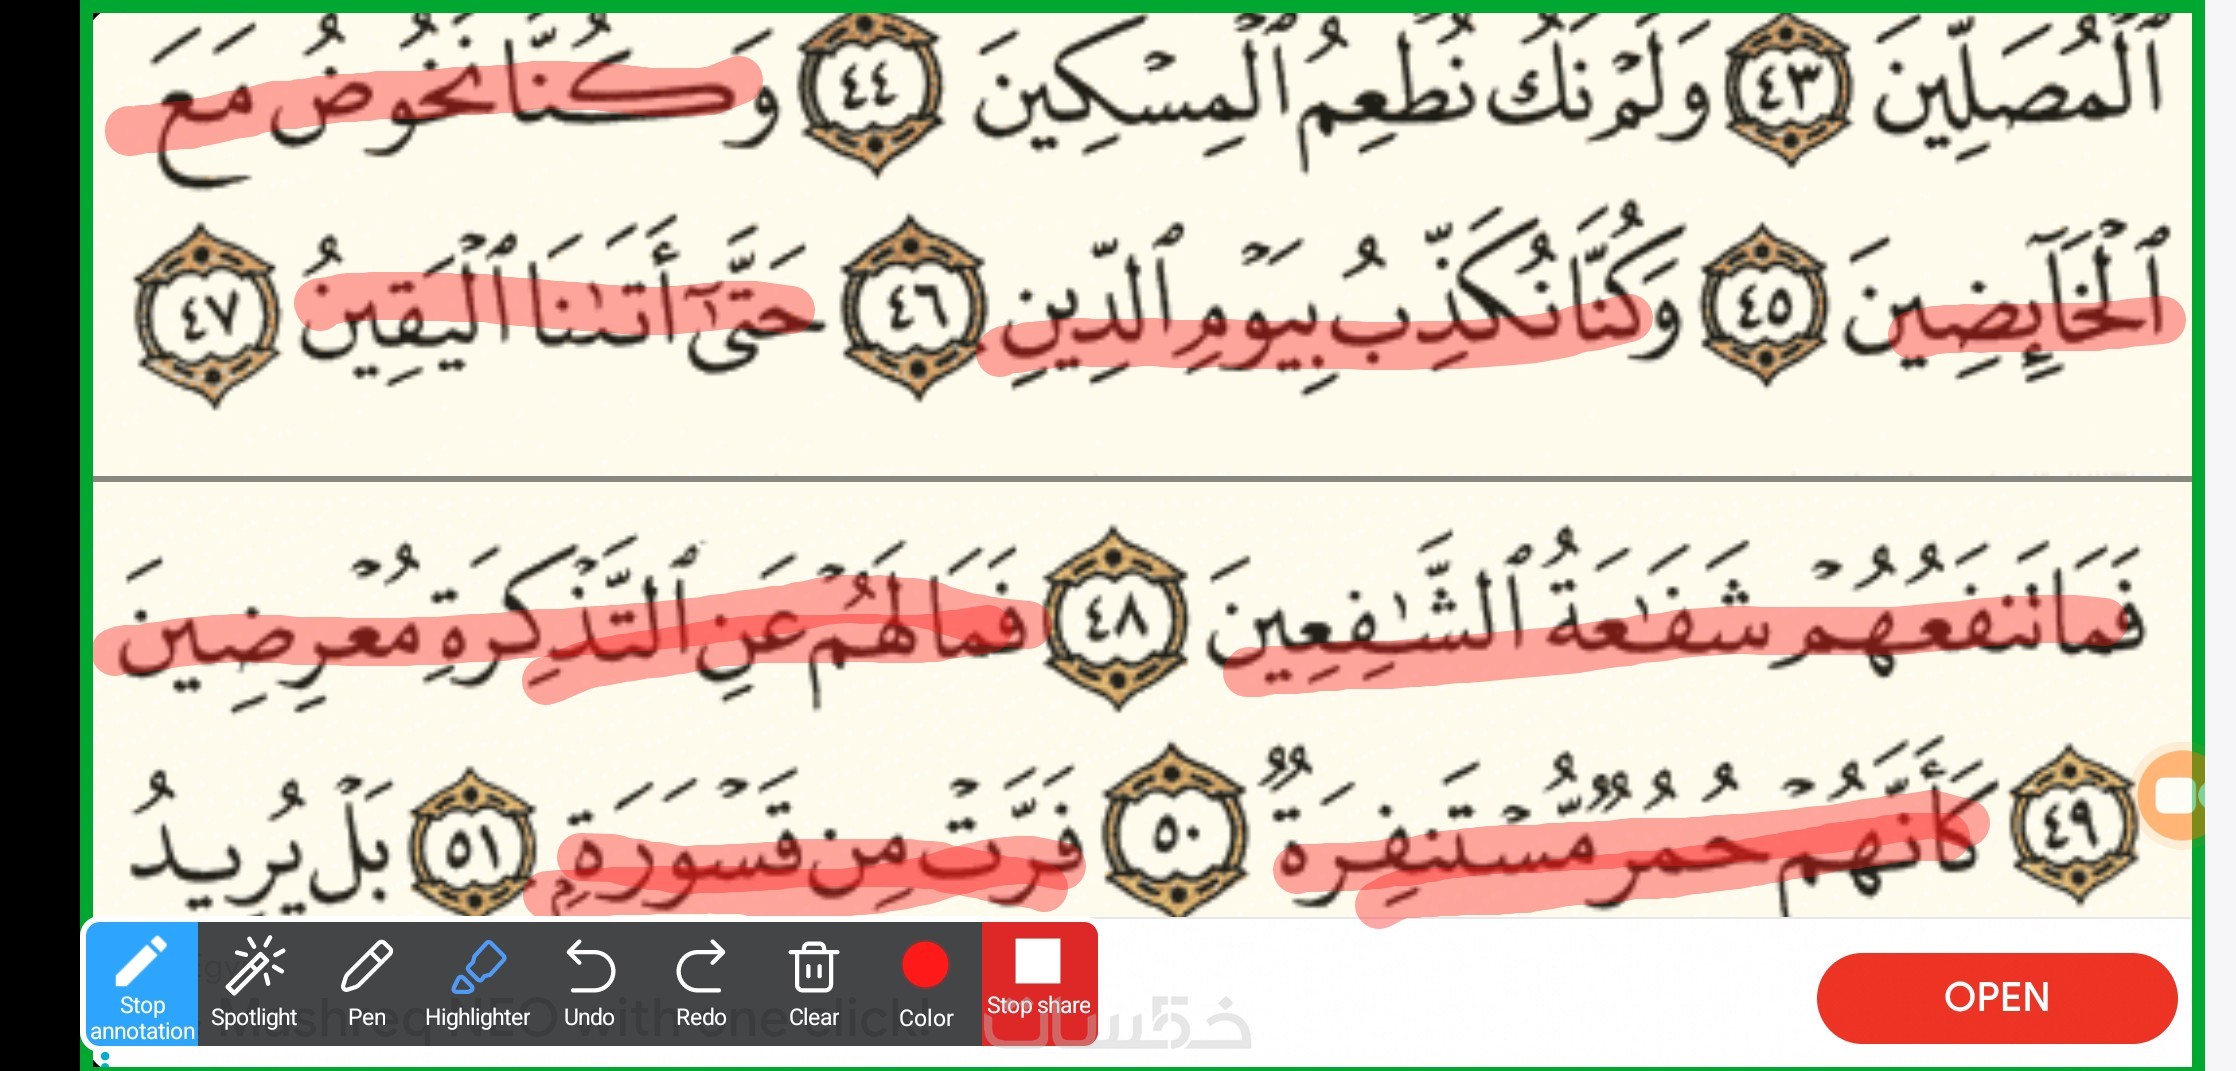 ٱلۡمُصَلِّينَ ٤٣ وَلَمۡ نَكُ نُطۡعِمُ ٱلۡمِسۡكِينَ ٤٤ وَكُنَّا نَخُوضُ مَعَ
ٱلۡخَآئِضِينَ ٤٥ وَكُنَّا نُكَذِّبُ بِيَوۡمِ ٱلدِّينِ ٤٦ حَتَّىٰٓ أَتَىٰنَا ٱلۡيَقِينُ ٤٧
فَمَا تَنفَعُهُمۡ شَفَٰعَةُ ٱلشَّٰفِعِينَ ٤٨ فَمَا لَهُمۡ عَنِ ٱلتَّذۡكِرَةِ مُعۡرِضِينَ
٤٩ كَأَنَّهُمۡ حُمُرٞ مُّسۡتَنفِرَةٞ ٥٠ فَرَّتۡ مِن قَسۡوَرَةِۭ ٥١ بَلۡ يُرِيدُ
Stop annotation
Spotlight
Pen
Highlighter
Undo
Redo
Clear
Color
Stop share
OPEN
خمسات